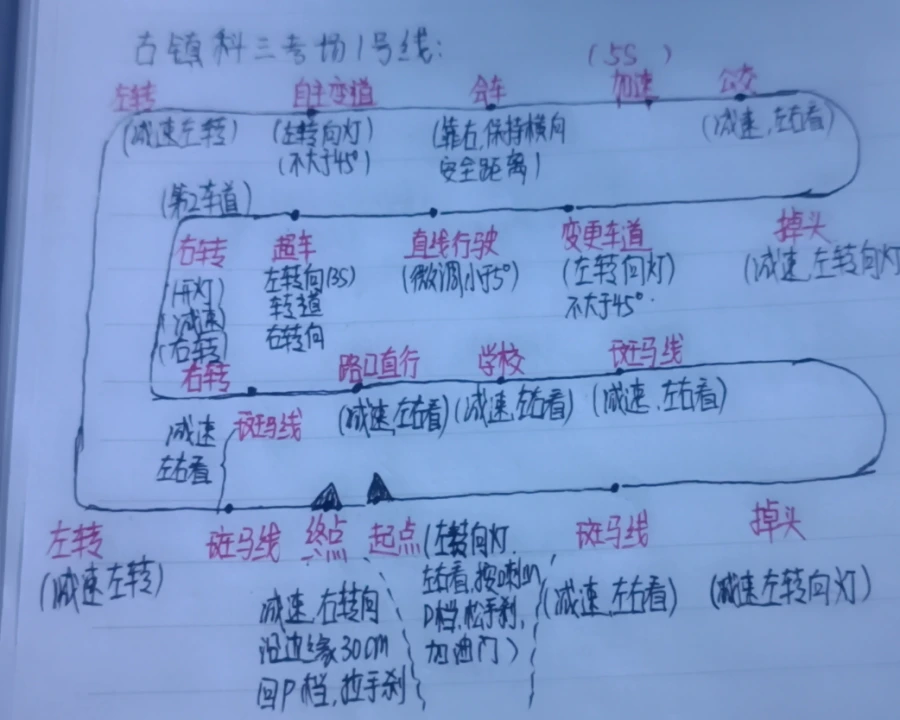 古镇科三考场1号线:
(5S)
左转 自主变道 会车 加速 公交
(减速左转) (左转向灯) (靠右,保持横向 (减速,左右看)
(不大于45°) 安全距离)
(第2车道)
右转 超车 直线行驶 变更车道 掉头
(开灯) 左转向(3S) (微调小于5°) (左转向灯) (减速,左转向灯
(减速) 转道 不大于45°.
(右转) 右转向
右转 路口直行 学校 斑马线
(减速,左右看) (减速,左右看) (减速,左右看)
减速 斑马线
左右看
左转 斑马线 终点 起点 (左转向灯. 斑马线 掉头
(减速左转) 左右看,按喇叭 (减速,左右看) (减速左转向灯)
减速,右转向 D档,松手刹,
沿边缘30cm 加油门)
回P档,拉手刹